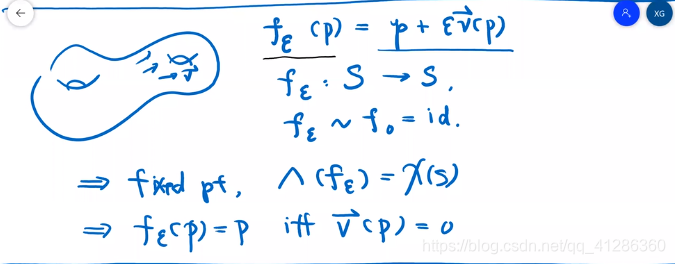 f_ε(p) = p + εv⃗(p)
→ v⃗
f_ε : S → S,
f_ε ~ f_0 = id.
⇒ fixed pt, Λ(f_ε) = χ(S)
⇒ f_ε(p) = p iff v⃗(p) = 0
XG
https://blog.csdn.net/qq_41286360